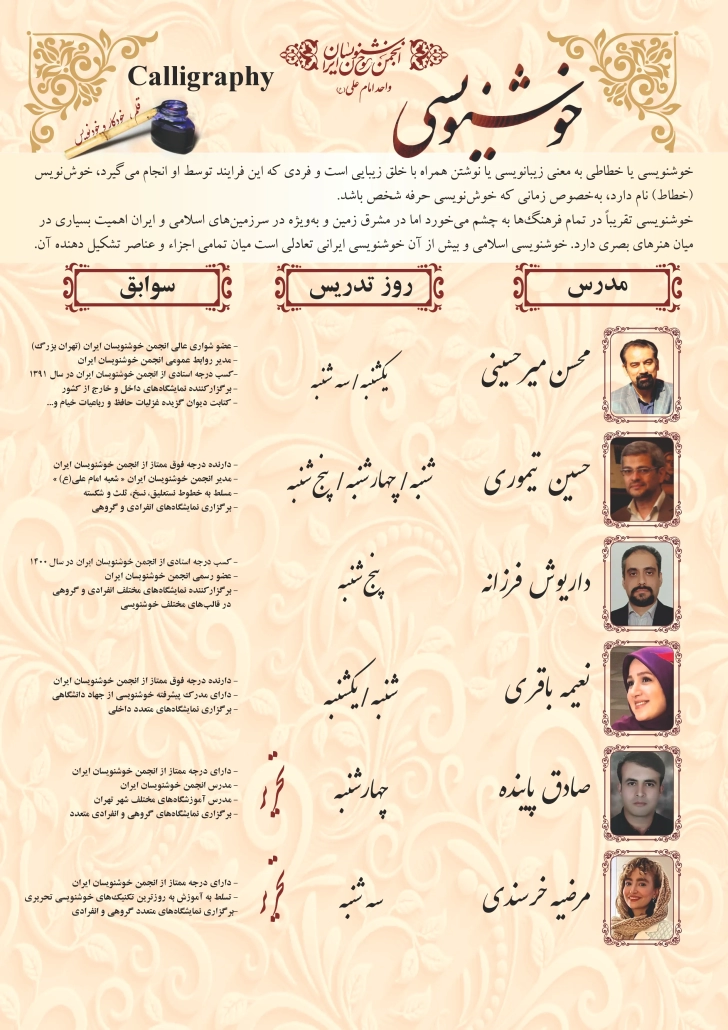 انجمن خوشنویسان ایران
واحد امام علی (ع)
Calligraphy
خوشنویسی
قلم، خودکار و خودنویس
خوشنویسی یا خطاطی به معنی زیبانویسی یا نوشتن همراه با خلق زیبایی است و فردی که این فرایند توسط او انجام می‌گیرد، خوش‌نویس
(خطاط) نام دارد، به‌خصوص زمانی که خوش‌نویسی حرفه شخص باشد.
خوشنویسی تقریباً در تمام فرهنگ‌ها به چشم می‌خورد اما در مشرق زمین و به‌ویژه در سرزمین‌های اسلامی و ایران اهمیت بسیاری در
میان هنرهای بصری دارد. خوشنویسی اسلامی و بیش از آن خوشنویسی ایرانی تعادلی است میان تمامی اجزاء و عناصر تشکیل دهنده آن.
مدرس
روز تدریس
سوابق
محسن میرحسینی
یکشنبه / سه شنبه
- عضو شواری عالی انجمن خوشنویسان ایران (تهران بزرگ)
- مدیر روابط عمومی انجمن خوشنویسان ایران
-کسب درجه استادی از انجمن خوشنویسان ایران در سال ۱۳۹۱
- برگزارکننده نمایشگاه‌های داخل و خارج از کشور
- کتابت دیوان گزیده غزلیات حافظ و رباعیات خیام و...
حسین تیموری
شنبه / چهارشنبه / پنج شنبه
- دارنده درجه فوق ممتاز از انجمن خوشنویسان ایران
- مدیر انجمن خوشنویسان ایران « شعبه امام علی(ع) »
- مسلط به خطوط نستعلیق، نسخ، ثلث و شکسته
- برگزاری نمایشگاه‌های انفرادی و گروهی
داریوش فرزانه
پنج شنبه
- کسب درجه استادی از انجمن خوشنویسان ایران در سال ۱۴۰۰
- عضو رسمی انجمن خوشنویسان ایران
- برگزارکننده نمایشگاه‌های مختلف انفرادی و گروهی
در قالب‌های مختلف خوشنویسی
نعیمه باقری
شنبه / یکشنبه
- دارنده درجه فوق ممتاز از انجمن خوشنویسان ایران
- دارای مدرک پیشرفته خوشنویسی از جهاد دانشگاهی
- برگزاری نمایشگاه‌های متعدد داخلی
صادق پاینده
چهارشنبه
تحریر
- دارای درجه ممتاز از انجمن خوشنویسان ایران
- مدرس انجمن خوشنویسان ایران
- مدرس آموزشگاه‌های مختلف شهر تهران
- برگزاری نمایشگاه‌های گروهی و انفرادی متعدد
مرضیه خرسندی
سه شنبه
تحریر
- دارای درجه ممتاز از انجمن خوشنویسان ایران
- تسلط به آموزش به روزترین تکنیک‌های خوشنویسی تحریری
-برگزاری نمایشگاه‌های متعدد گروهی و انفرادی